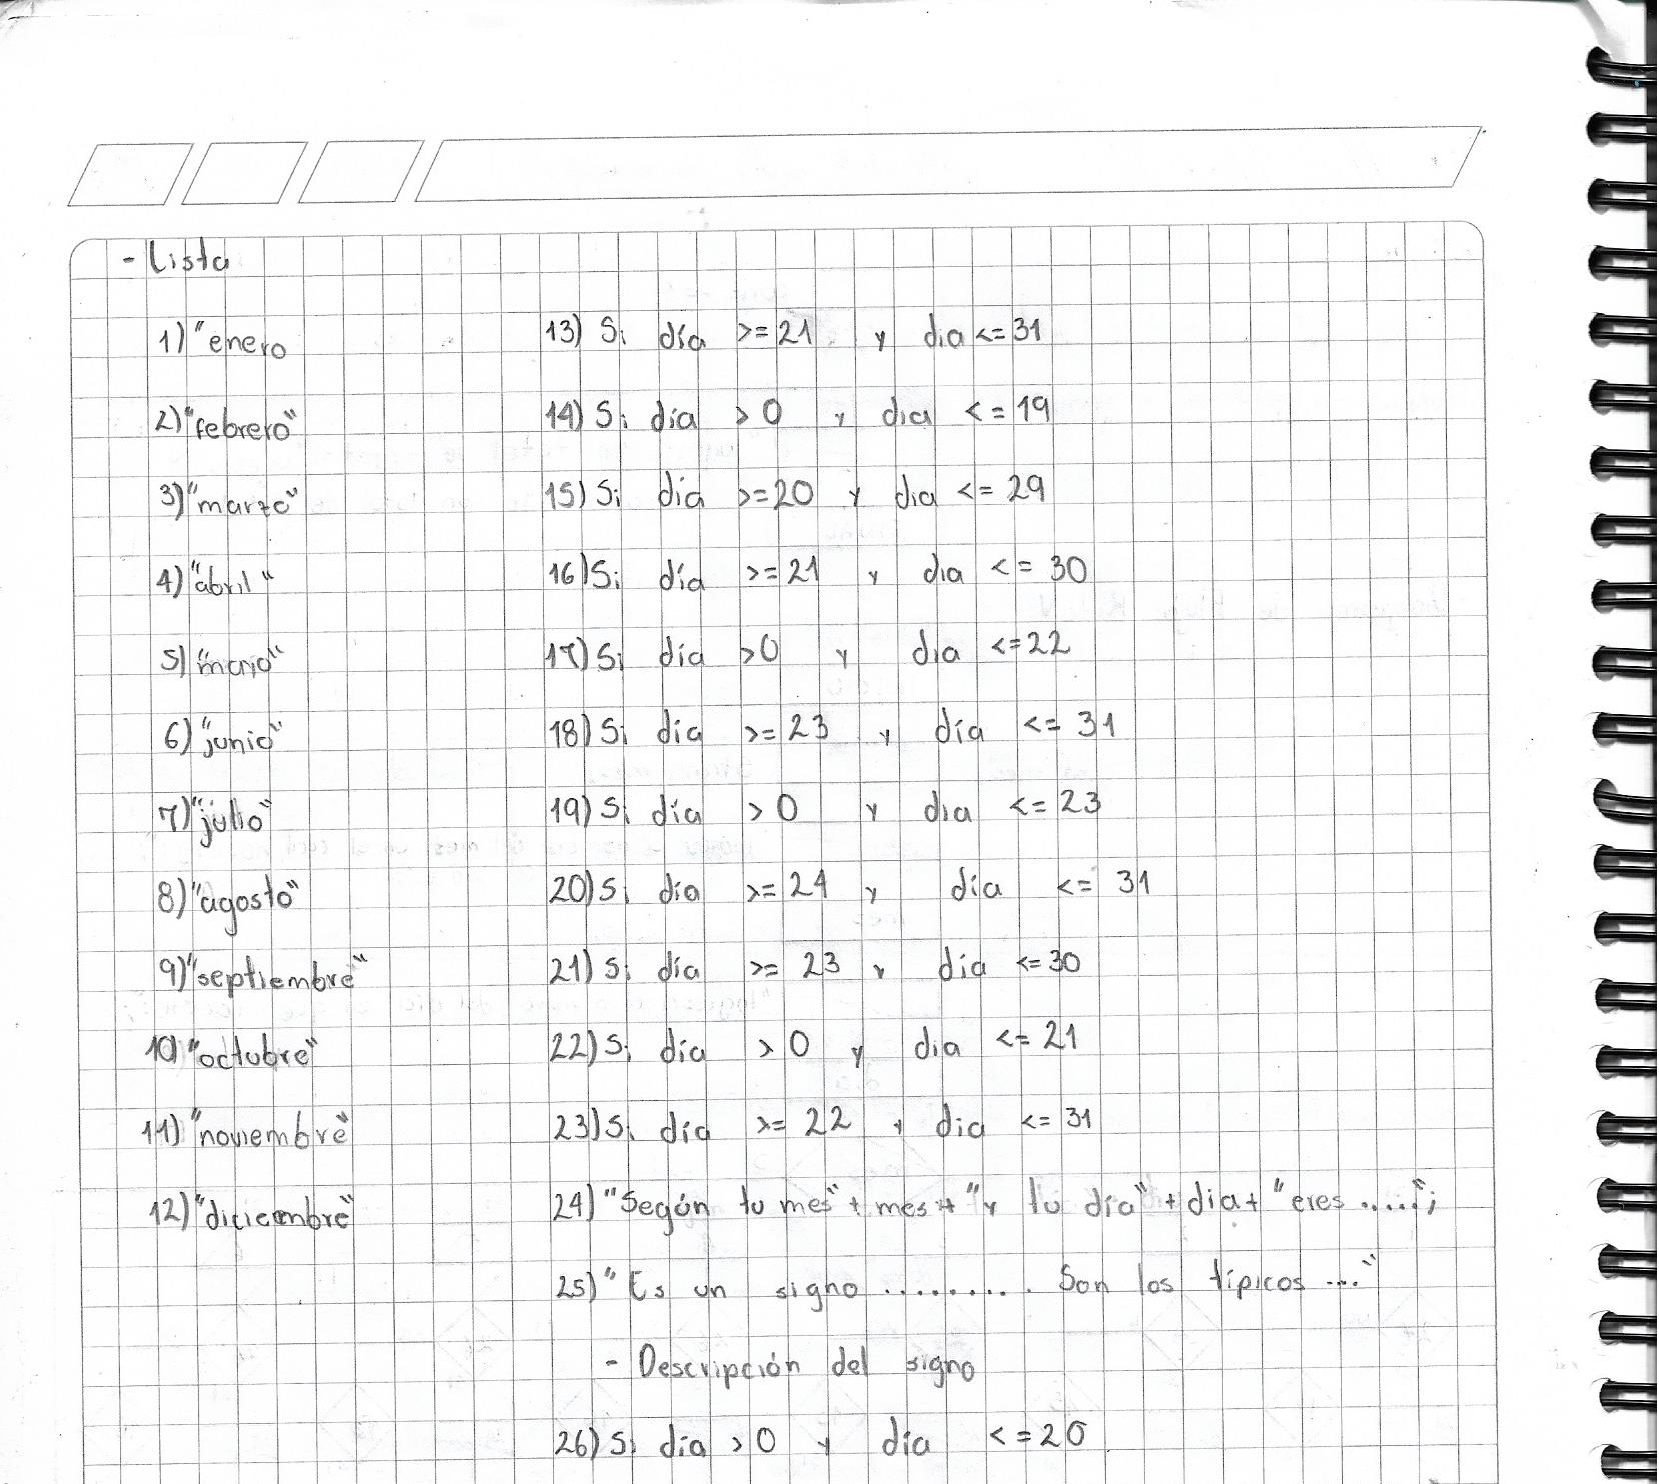 - Lista
1) "enero
2) "febrero"
3) "marzo"
4) "abril"
5) "mayo"
6) "junio"
7) "julio"
8) "agosto"
9) "septiembre"
10) "octubre"
11) "noviembre"
12) "diciembre"
13) Si día >= 21 y dia <= 31
14) Si dia > 0 y dia <= 19
15) Si dia >= 20 y dia <= 29
16) Si día >= 21 y dia <= 30
17) Si día > 0 y dia <= 22
18) Si dia >= 23 y día <= 31
19) Si día > 0 y dia <= 23
20) Si día >= 24 y día <= 31
21) Si día >= 23 y día <= 30
22) Si día > 0 y dia <= 21
23) Si día >= 22 y dia <= 31
24) "Según tu mes" + mes + "y tu día" + dia + "eres .....";
25) "Es un signo .......... Son los típicos ...."
- Descripción del signo
26) Si dia > 0 y día <= 20